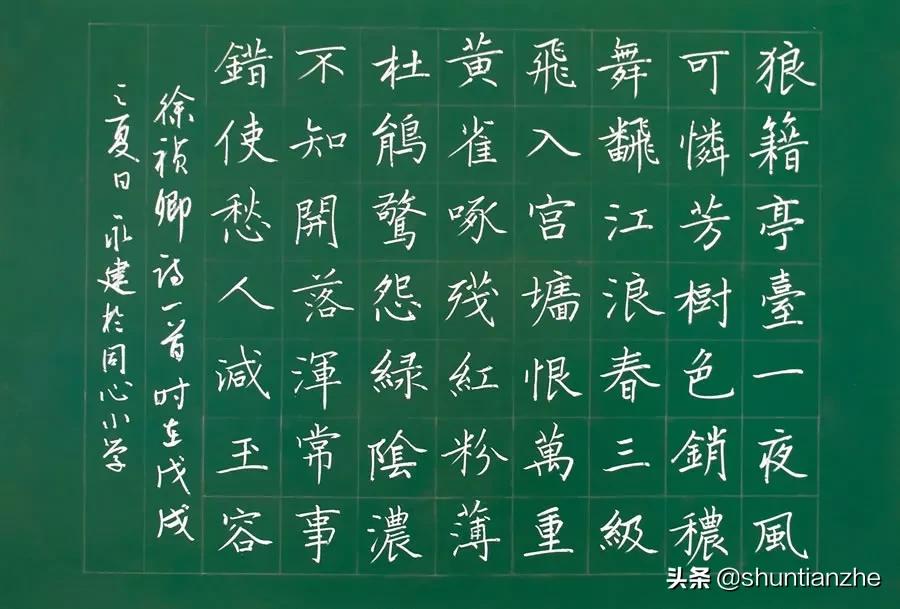 狼籍亭臺一夜風
可憐芳樹色銷穠
舞飜江浪春三級
飛入宮墻恨萬重
黃雀啄殘紅粉薄
杜鵑驚怨綠陰濃
不知開落渾常事
錯使愁人減玉容
徐祯卿詩一首时在戊戌
之夏日永建於同心小学
头条 @shuntianzhe